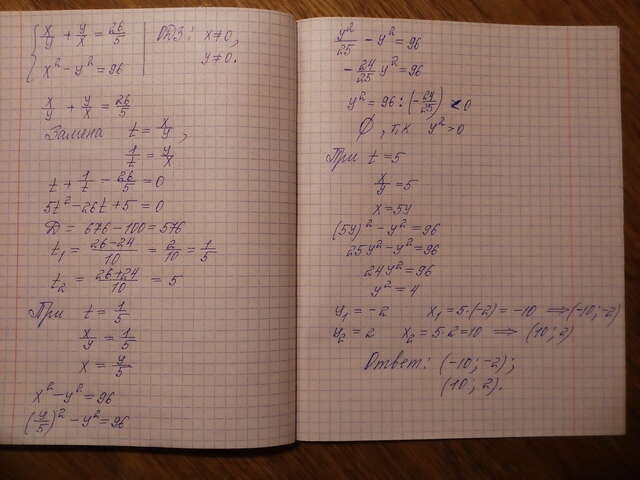 x/y + y/x = 26/5 | ОДЗ: x≠0,
x² - y² = 96 | y≠0.
x/y + y/x = 26/5
Замена t = x/y,
1/t = y/x
t + 1/t - 26/5 = 0
5t² - 26t + 5 = 0
D = 676 - 100 = 576
t₁ = (26-24)/10 = 2/10 = 1/5
t₂ = (26+24)/10 = 5
При t = 1/5
x/y = 1/5
x = y/5
x² - y² = 96
(y/5)² - y² = 96
y²/25 - y² = 96
-24/25 y² = 96
y² = 96 : (-24/25) < 0
∅, т.к y² > 0
При t = 5
x/y = 5
x = 5y
(5y)² - y² = 96
25y² - y² = 96
24y² = 96
y² = 4
y₁ = -2 x₁ = 5·(-2) = -10 ⟹ (-10; -2)
y₂ = 2 x₂ = 5·2 = 10 ⟹ (10; 2)
Ответ: (-10; -2);
(10; 2).